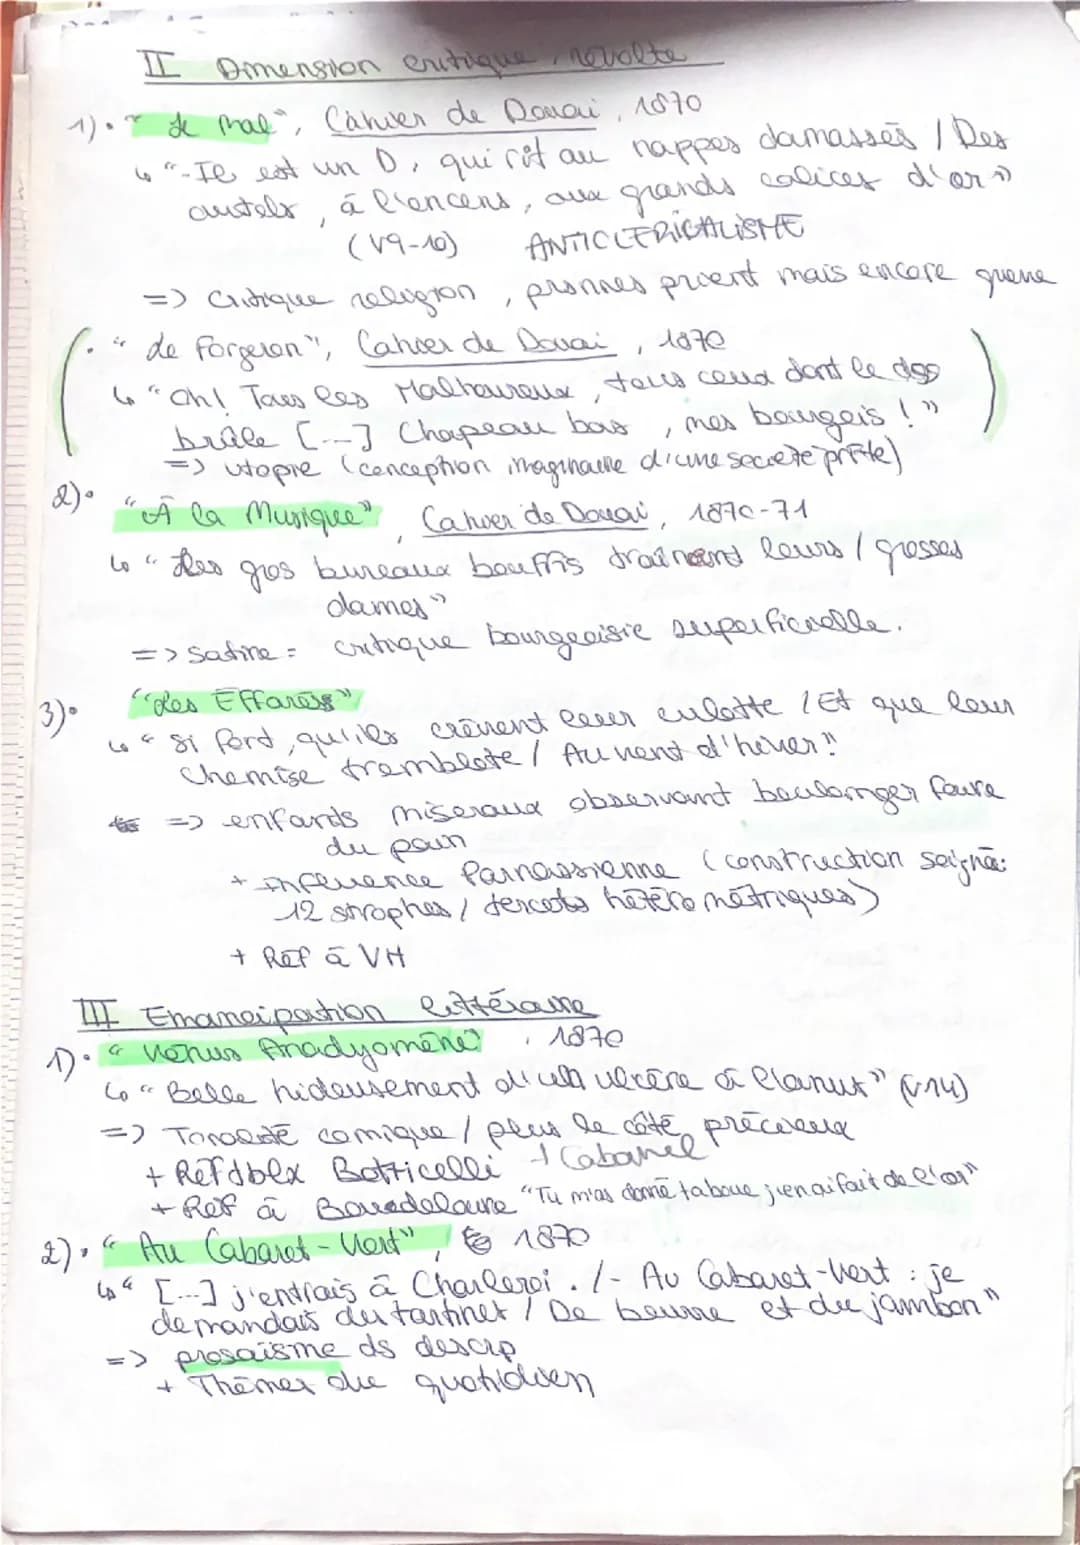 II Dimension critique, révolte
1) • "Le Mal", Cahier de Douai, 1870
↳ "- Il est un D, qui rit au nappes damassés / Des
autels, à l'encens, aux grands calices d'or"
(V9-10) ANTICLERICALISME
=> Critique religion, pronnes prient mais encore guerre
( • "Le Forgeron", Cahier de Douai, 1870
↳ "Oh! Tous les Malheureux, tous ceux dont le dos )
brûle [---] Chapeau bas, mes bourgeois !"
=> utopie (conception imaginaire d'une société pfte)
2) • "À la Musique", Cahier de Douai, 1870-71
↳ "Les gros bureaux bouffis traînent leurs / grosses
dames"
=> Satire = critique bourgeoisie superficielle.
3) • "Les Effarés"
↳ "Si fort, qu'ils crèvent leur culotte / Et que leur
chemise tremblote / Au vent d'hiver"
=> enfants miséraux observant boulanger faire
du pain
+ influence Parnassienne (construction soignée:
12 strophes / tercets hétérométriques)
+ Réf à VH
III Emancipation littéraire
1) • "Vénus Anadyomène", 1870
↳ "Belle hideusement d'un ulcère à l'anus" (v.14)
=> Tonalité comique / plus le côté précieux
+ Réf tblx Botticelli + Cabanel
+ Réf à Bauedelaire "Tu m'as donné ta boue, j'en ai fait de l'or"
2) • "Au Cabaret-Vert", 1870
↳ "[---] j'entrais à Charleroi. / - Au Cabaret-Vert : je
demandais des tartines / De beurre et du jambon"
=> prosaïsme ds descrip
+ Thèmes du quotidien